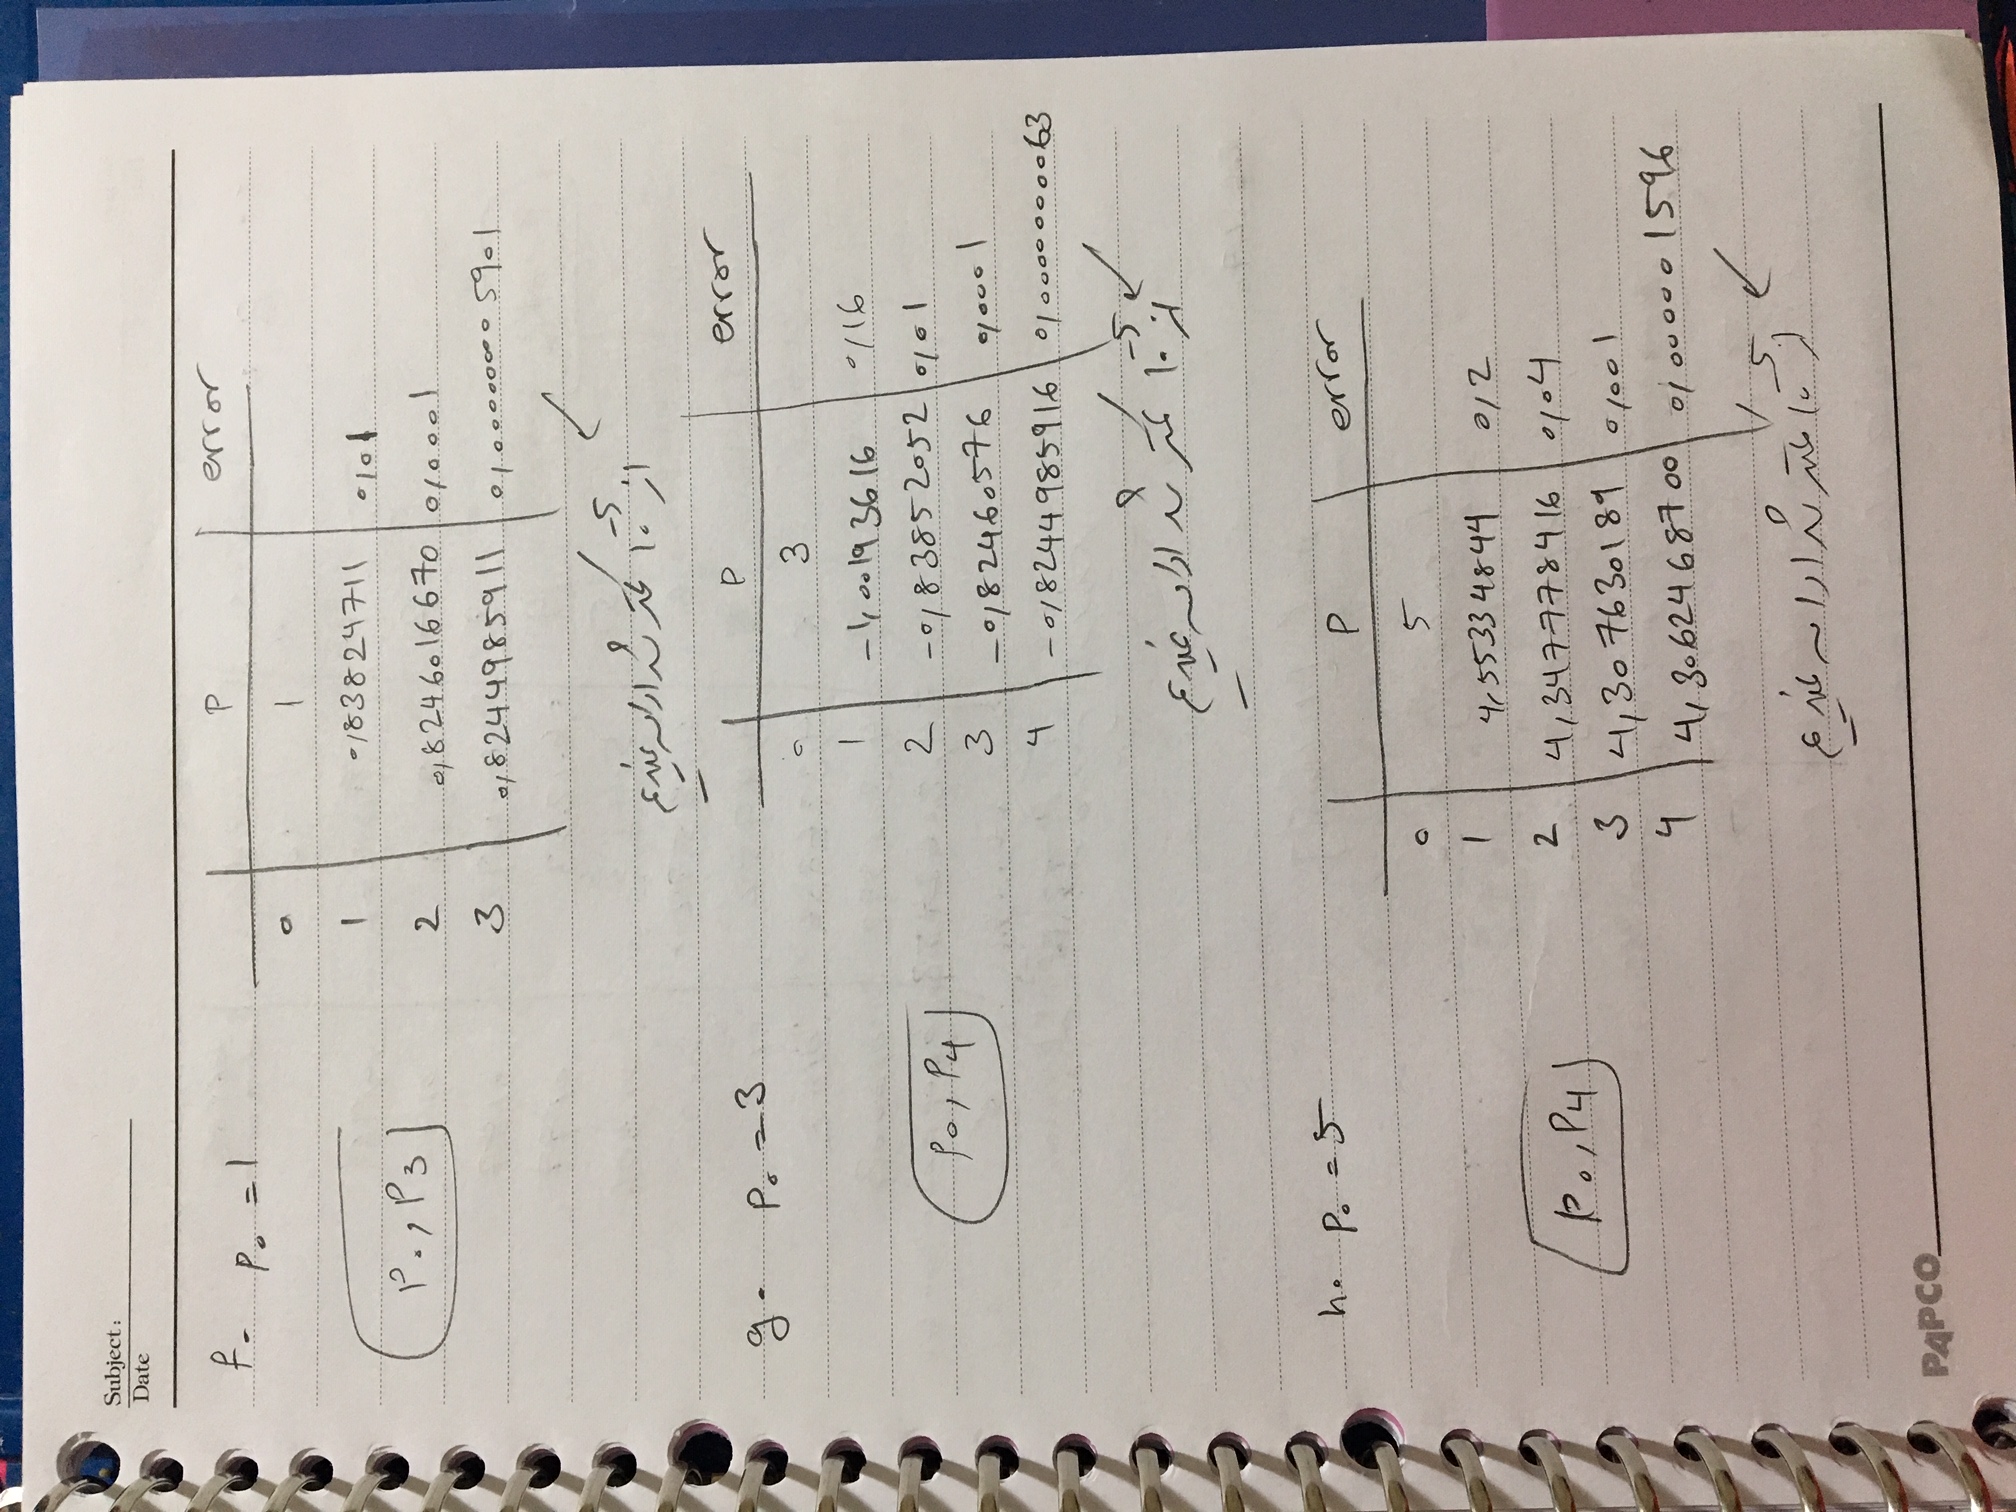 Subject:
Date
f. P₀ = 1
P error
0 1
1 0,83824711 0,01
2 0,8246016670 0,0001
3 0,8244985911 0,00000005901
P₀, P3
از 10^-5 کمتر شد ادامه نمیدیم
g. P₀ = 3
P error
0 3
1 -1,00193616 0,16
2 -0,83852052 0,01
3 -0,82460576 0,0001
4 -0,8244985916 0,00000000063
P₀, P4
از 10^-5 کمتر شد ادامه نمیدیم
h. P₀ = 5
P error
0 5
1 4,55334844 0,2
2 4,3477778416 0,04
3 4,307630189 0,001
4 4,3062468700 0,000001596
P₀, P4
از 10^-5 کمتر شد ادامه نمیدیم
PAPCO